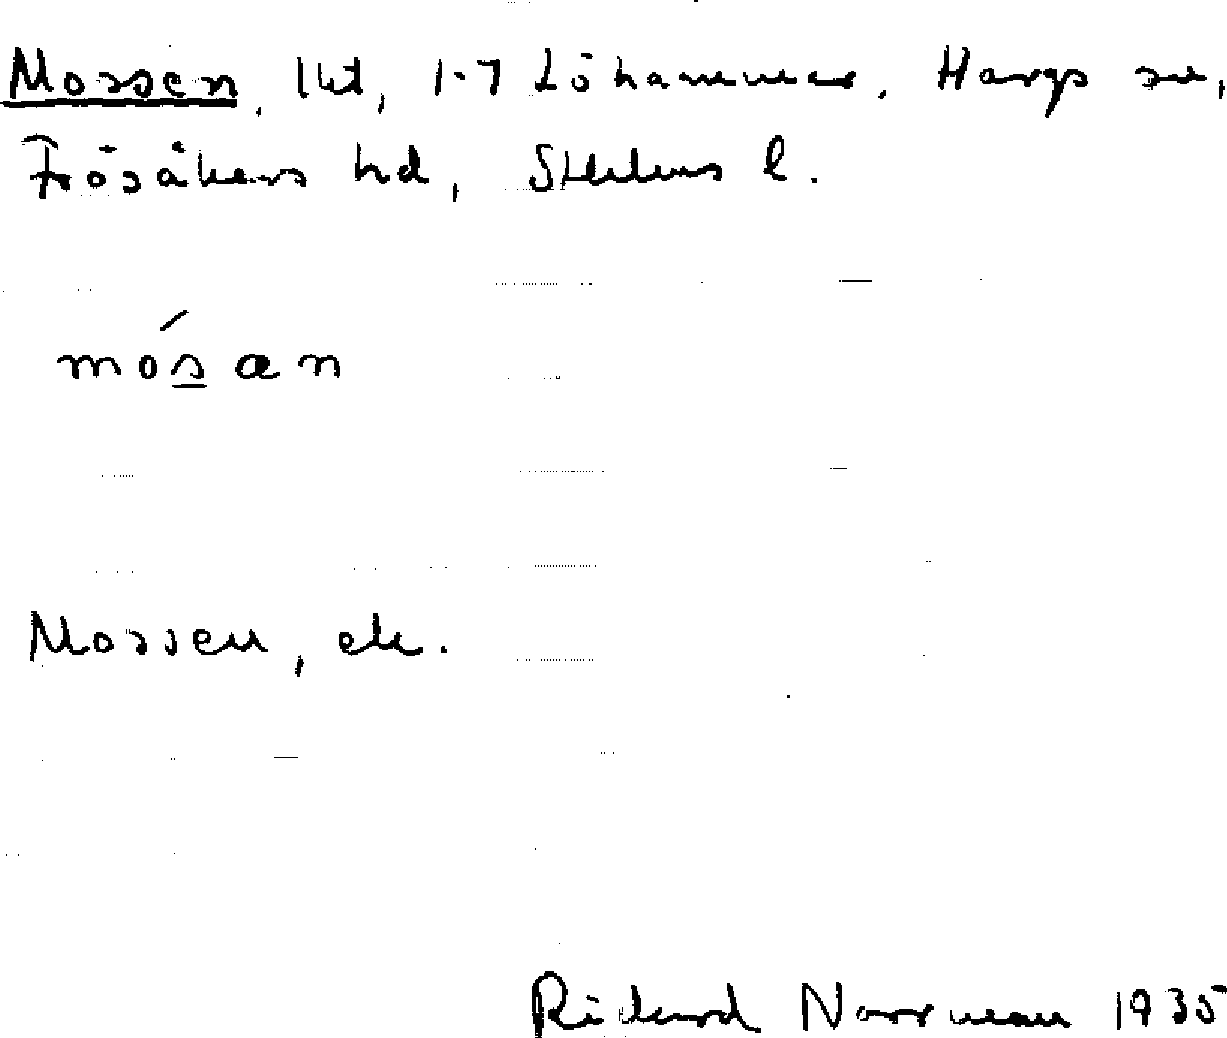 Mossen, lht, 1-7 Löhammar. Hargs sn,
Frösåkers hd, Sthlms l.
mósan
Mossen, ek.
Richard Norrman 1935